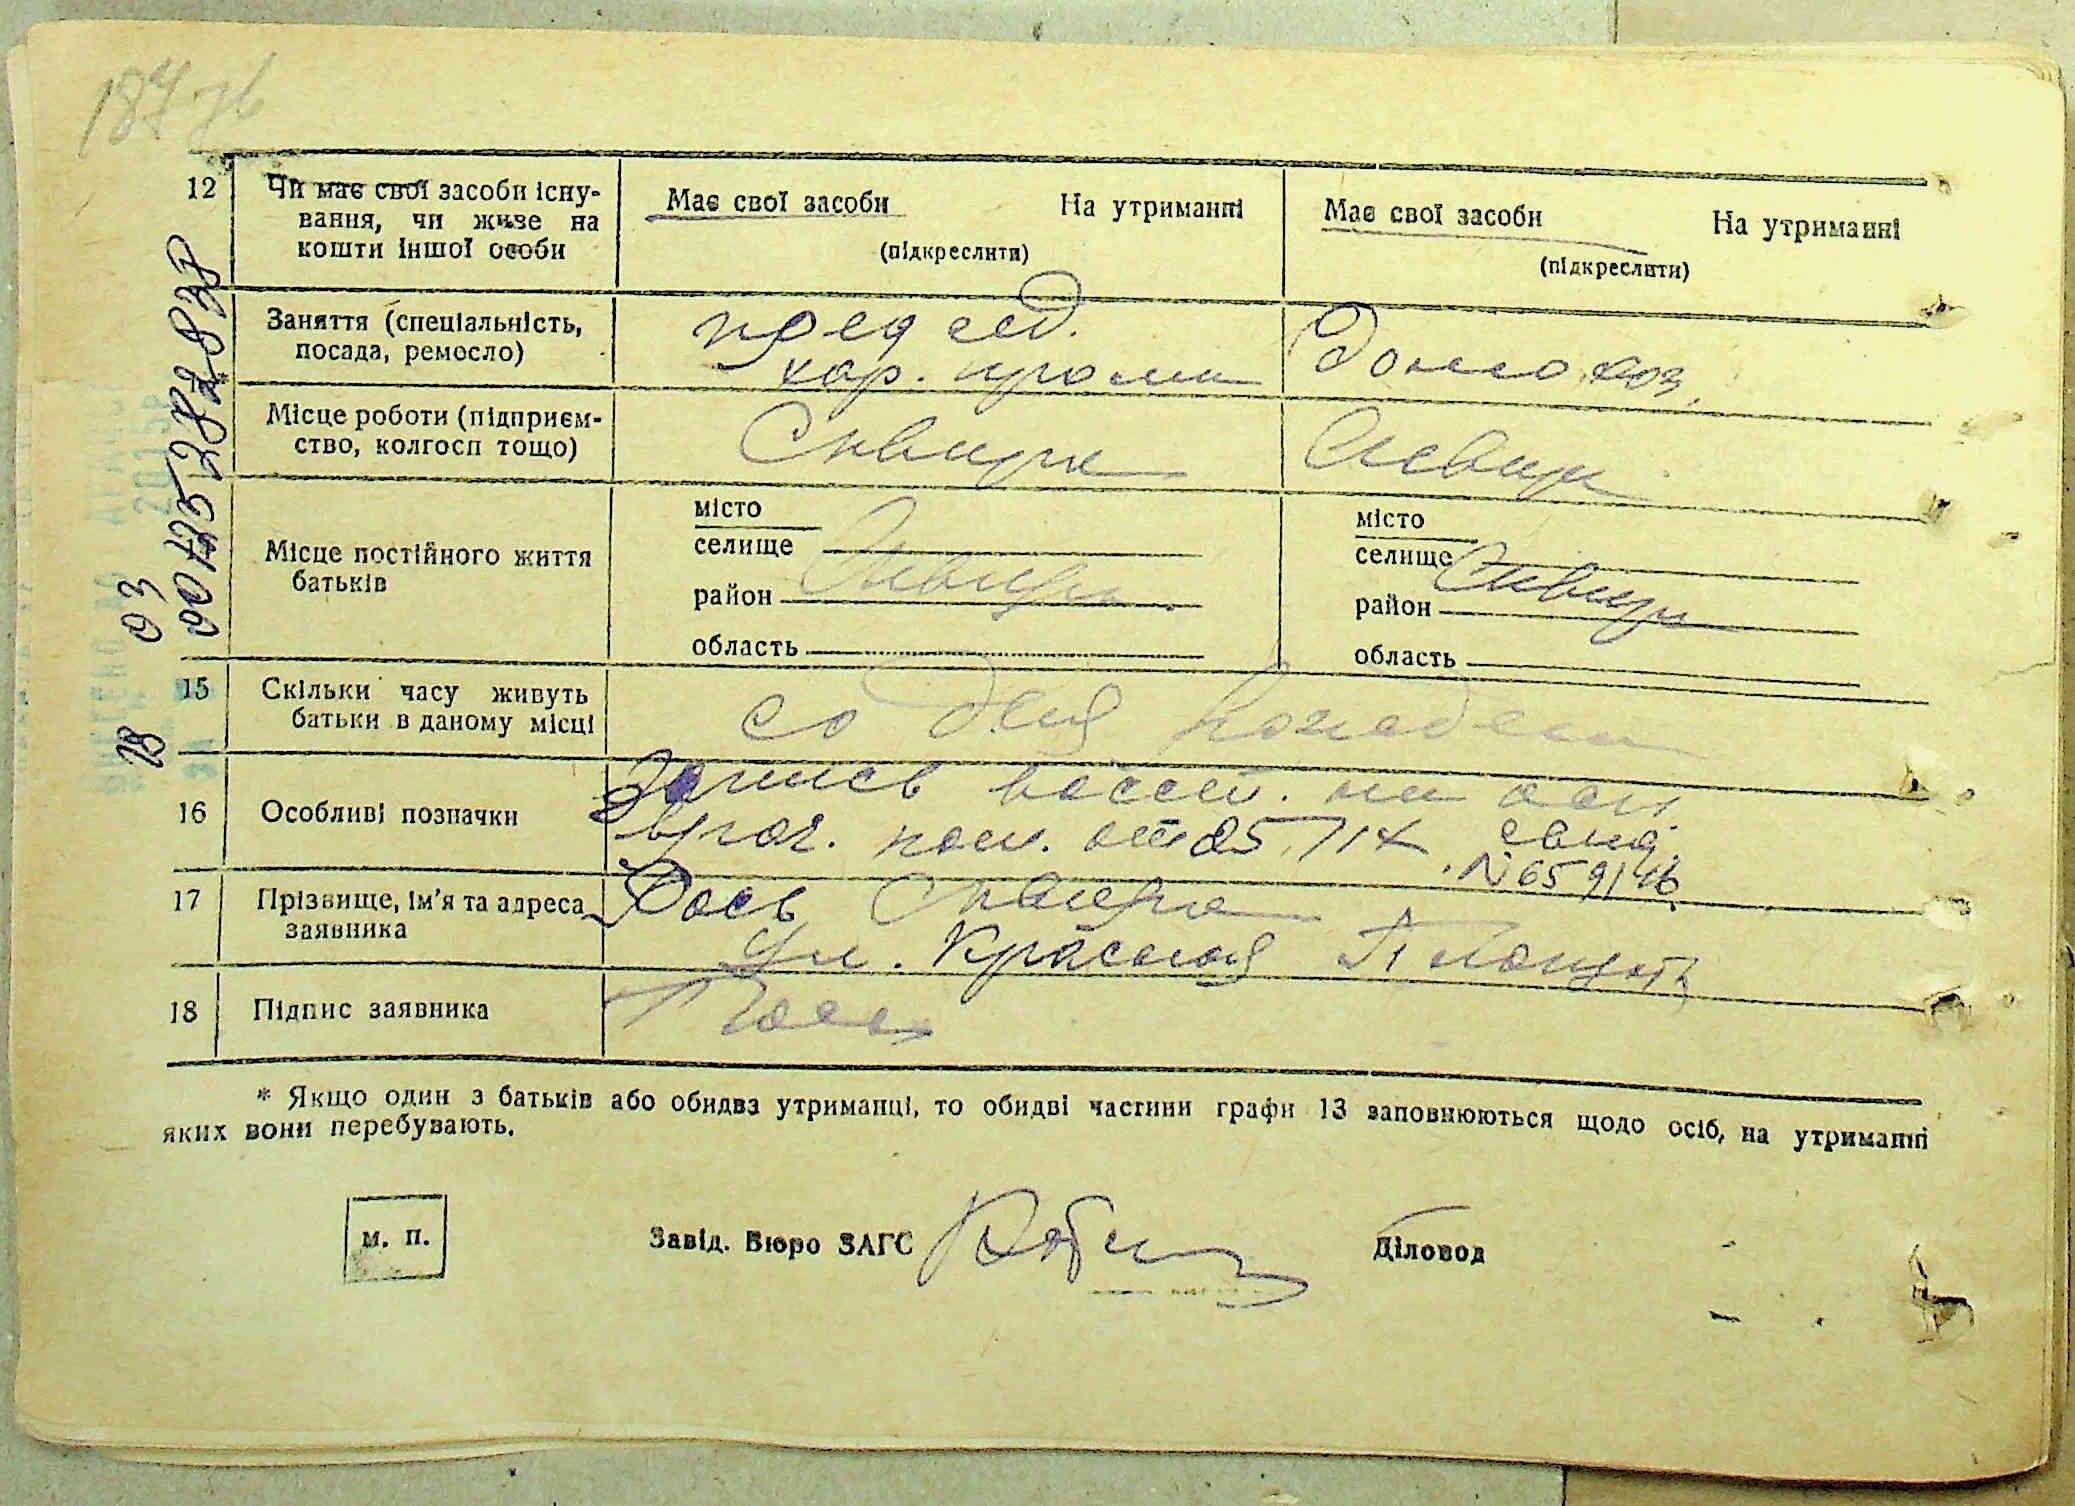 187 зв
12 Чи має свої засоби існу-
вання, чи живе на
кошти іншої особи
Має свої засоби На утриманні
(підкреслити)
Має свої засоби На утриманні
(підкреслити)
Заняття (спеціальність,
посада, ремосло)
председ.
хар. пром
Домохоз.
Місце роботи (підприєм-
ство, колгосп тощо)
Сквира
Сквир
Місце постійного життя
батьків
місто
селище
район Сквира
область
місто
селище
район Сквира
область
15 Скільки часу живуть
батьки в даному місці
со дня рожден
16 Особливі позначки
Запись восст. на осн.
врач. ком. от 25/IX свид.
N 659146
17 Прізвище, ім'я та адреса
заявника
Сквира
ул. Красная Площадь
18 Підпис заявника
* Якщо один з батьків або обидва утриманці, то обидві частини графи 13 заповнюються щодо осіб, на утриманні
яких вони перебувають.
м. п.
Завід. Бюро ЗАГС
Діловод
18 03